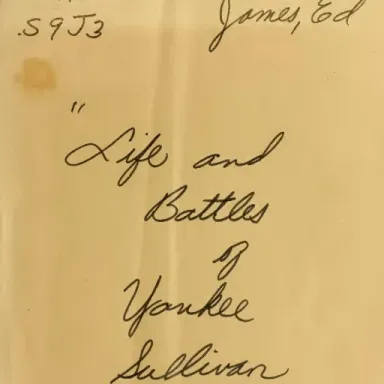 .S9J3
James, Ed
"Life and
Battles
of
Yankee
Sullivan